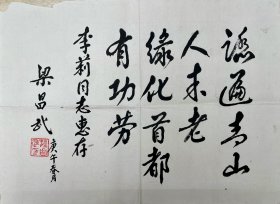 踏遍青山
人未老
绿化首都
有功劳
李莉同志惠存
梁昌武
庚午春月